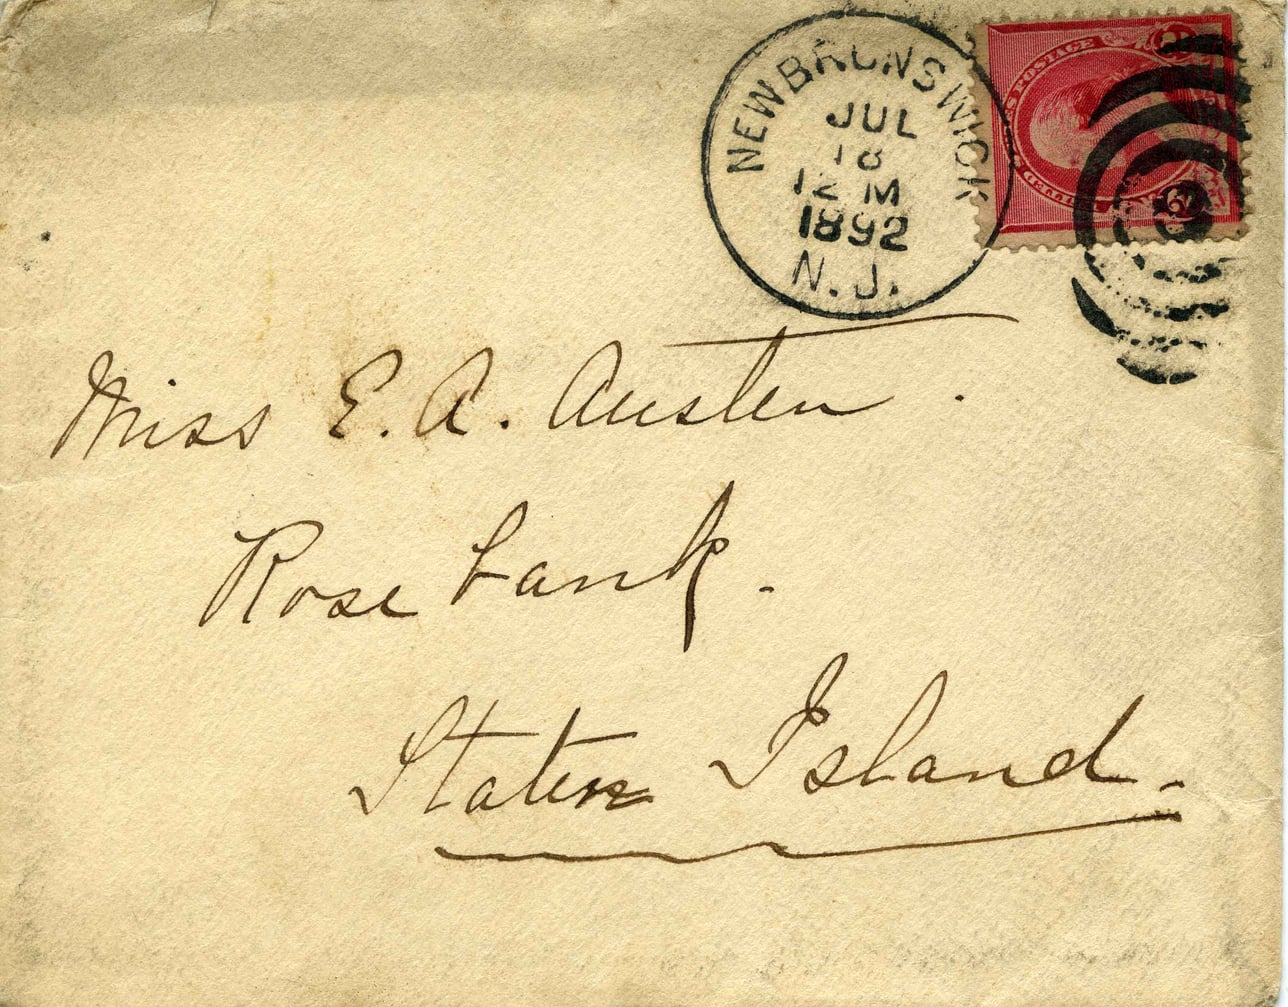 NEW BRUNSWICK
JUL
18
12 M
1892
N.J.
Miss E. A. Austen.
Rose bank.
Staten Island.